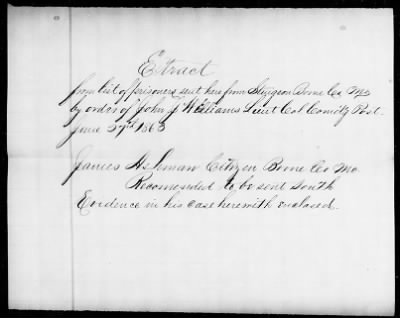 Extract
from list of prisoners sent here from Sturgeon Boone Co Mo
by order of John F Williams Lieut Col Comdg Post
June 27th 1863
James Boone Co Mo
Citizen Boone Co Mo
Recomended to be sent South
Evidence in his case herewith enclosed.